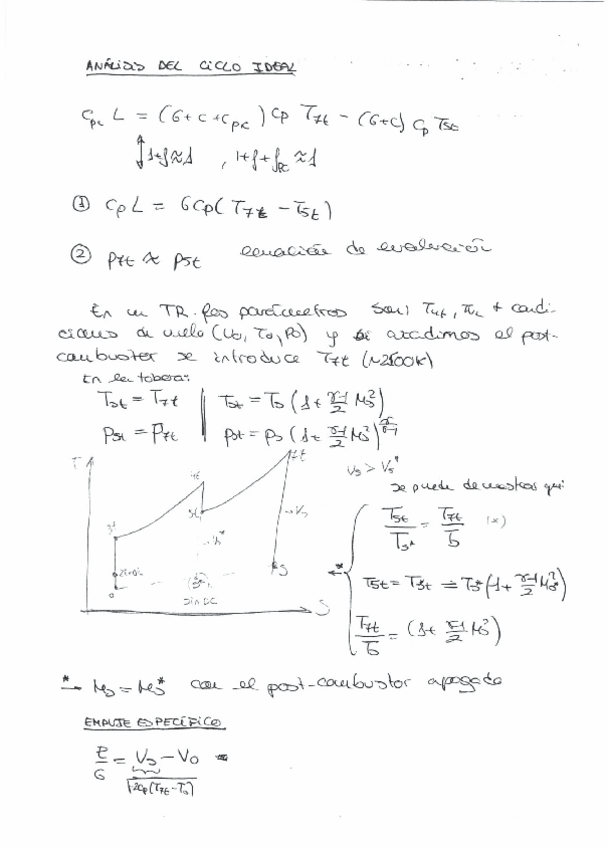 ANÁLISIS DEL CICLO IDEAL
C_pc L = (G+c+c_pc) Cp T7t - (G+c) Cp T5t
1+f≈1 , 1+f+f_pc≈1
① C_p L = G Cp (T7t - T5t)
② P7t ≈ P5t ecuación de
En un TR. los parámetros son: T4t, π_c + condi-
ciones de vuelo (V0, T0, P0) y si añadimos el post-
combustor se introduce T7t (~2500K)
En la tobera:
T9t = T7t | T9t = T9 (1+ γ-1/2 M9²)
P9t = P7t | P9t = P9 (1+ γ-1/2 M9²)^γ/γ-1
T
7t
V9 > V9*
4t
se puede demostrar que
5t
V9
V9*
T5t/T9* = T7t/T9 (*)
3t
2t=0t
9
*
T5t = T9t = T9* (1+ γ-1/2 M9*²)
0
SIN PC
S
T7t/T9 = (1+ γ-1/2 M9²)
* → M9 = M9* con el post-combustor apagado
EMPUJE ESPECÍFICO
E/G = V9 - V0
√2Cp(T7t-T9)